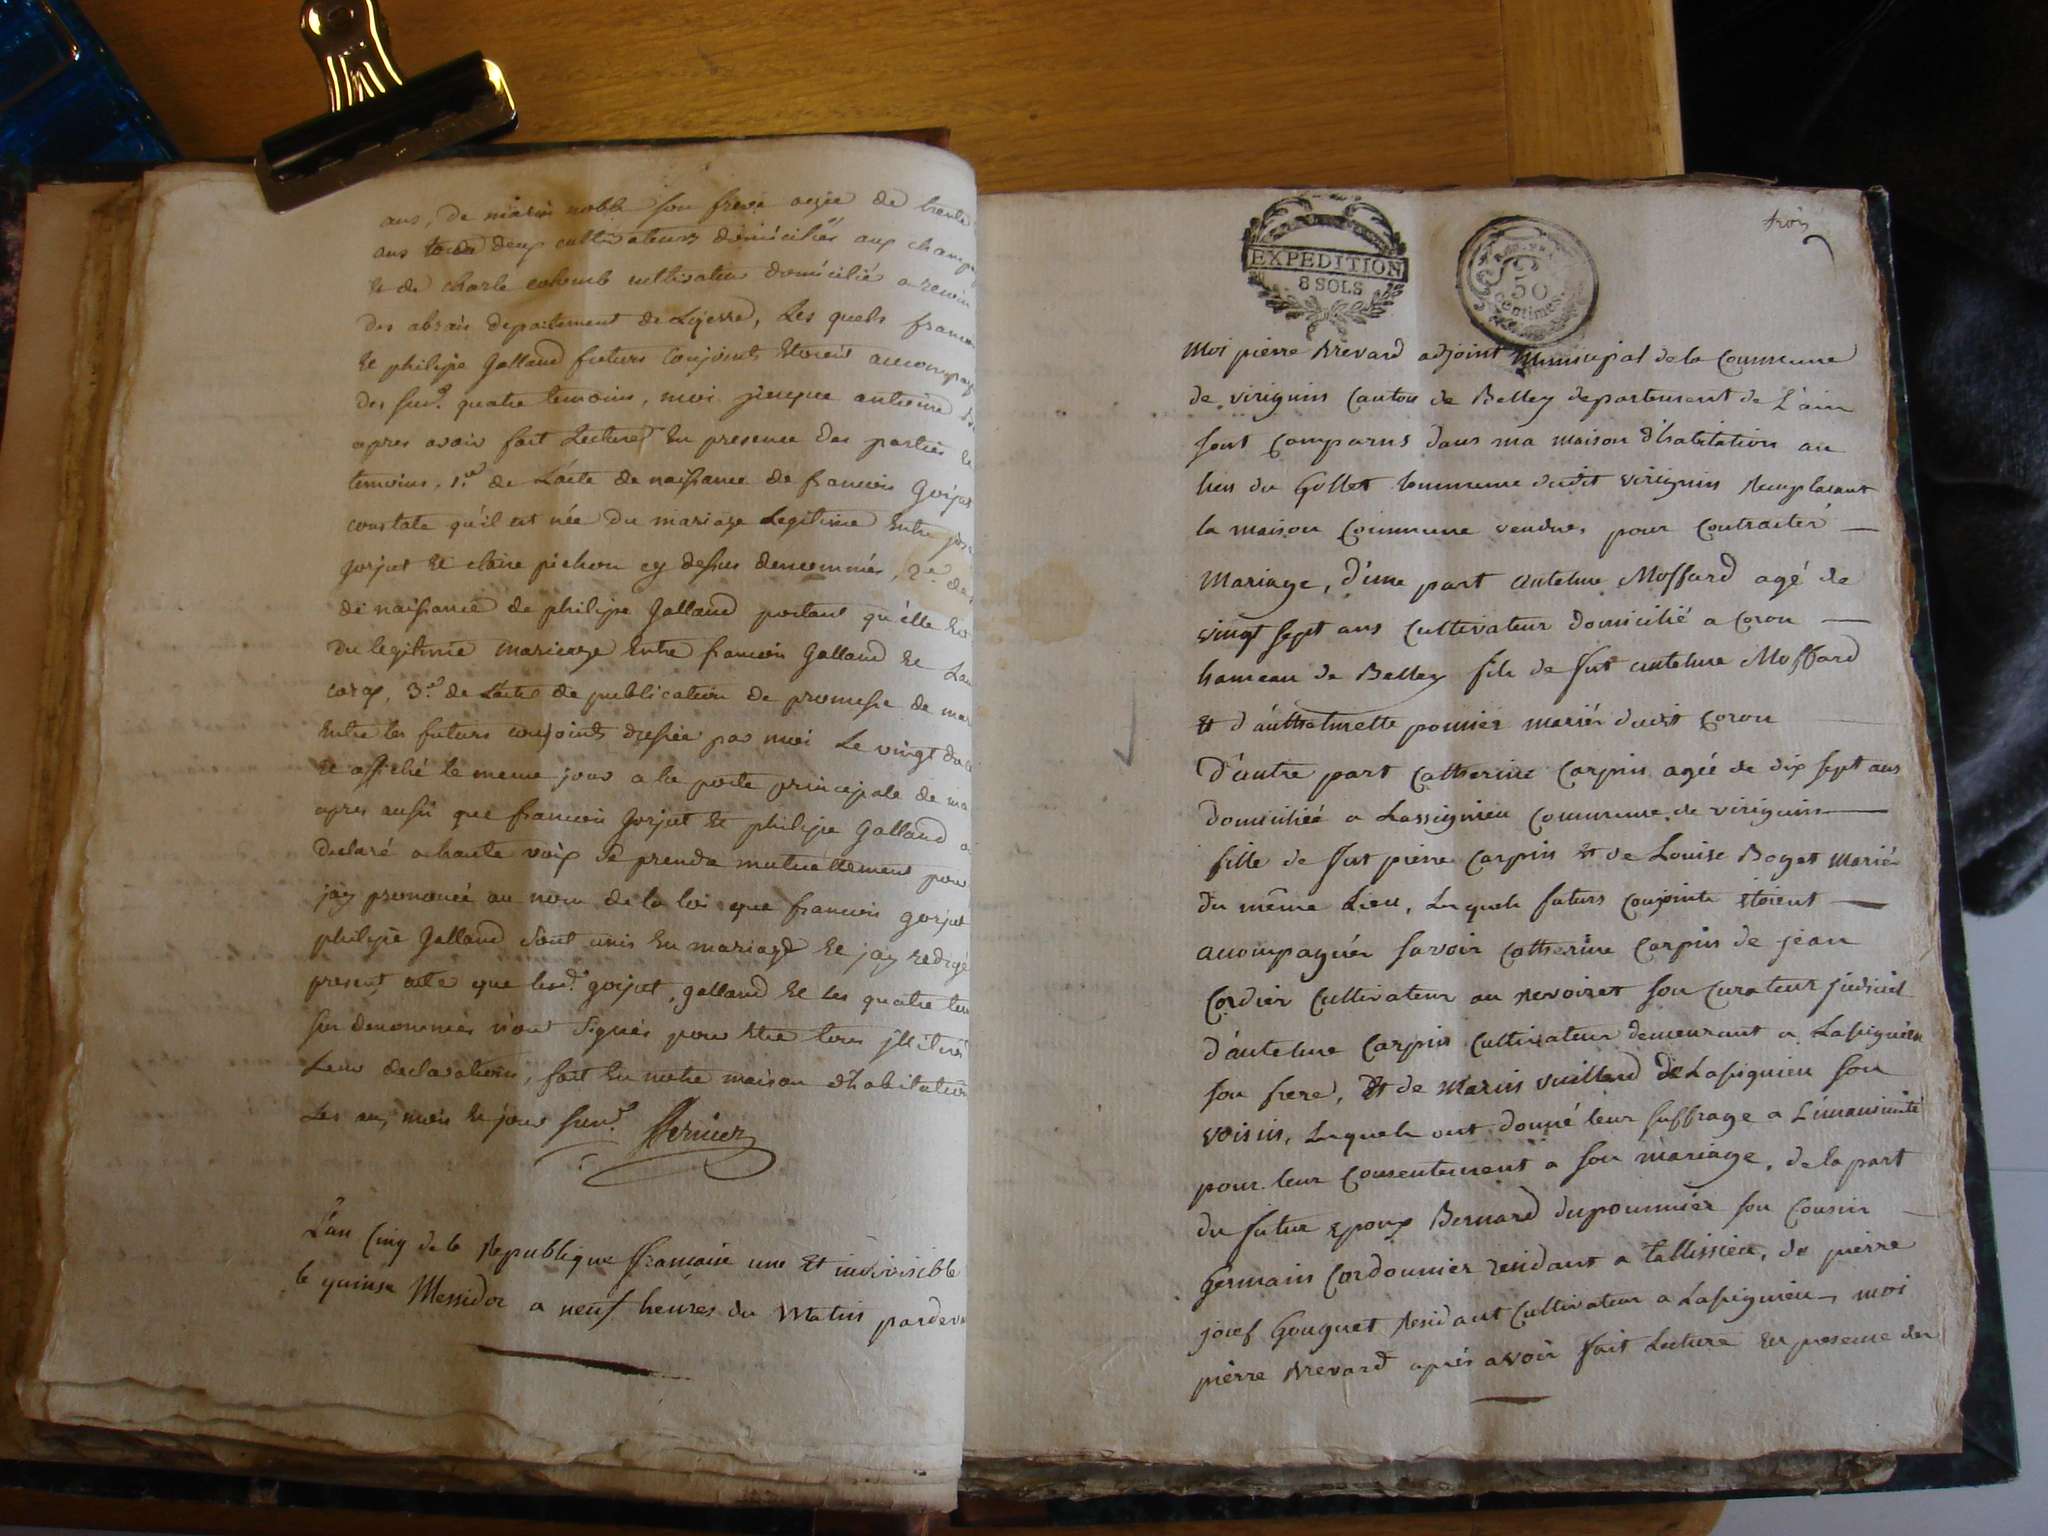 ans, de marin noble son frere agée de trente
ans tous deux cultivateurs domiciliés aux champ
et de charle colomb cultivateur domicilié a
des abrais departement de Lizerre, Les quels francoi
et philipe Galland futurs conjoints etoient accompag
des sud. quatre temoins, moi jacque antoine
apres avoir fait Lecture en presence des parties et
temoins, 1.er de L'acte de naissance de francois Gorjut
constate qu'il est née du mariage Legitime entre
gorjut et claire pichon cy dessus denommés, 2.e de
de naissance de philipe Galland portant qu'elle est
du legitime mariage entre francois Galland et
3.e de L'acte de publication de promesse de mar
entre les futurs conjoints dressée par moi Le vingt
et affiché le meme jour a la porte principale de ma
apres aussi que francois Gorjut et philipe Galland
declaré a haute voix se prendre mutuellement pour
jay prononcé au nom de la loi que francois gorjut
philipe Galland sont unis en mariage et jay redigé
present acte que lesd. gorjut, galland et les quatre tem
sus denommés n'ont signés pour etre tous illitrés
Leur declarations, fait en notre maison d'habitation
Les an, mois et jour susd. Bernier
L'an Cinq de la Republique francaise une et indivisible
le quinse Messidor a neuf heures du Matin pardev
trois
EXPEDITION
8 SOLS
50
Centimes
Moi pierre Brevard adjoint Municipal de la Commune
de virignin Canton de Belley departement de L'ain
sont comparus dans ma maison d'habitation au
lieu du Gollet commune dudit virignin Remplacant
la maison Commune vendue, pour contracter
Mariage, d'une part antelme Moffard agé de
vingt sept ans Cultivateur domicilié a Coron
hameau de Belley fils de fut antelme Moffard
Et d'anthelmette pomier mariés dudit Coron
D'autre part Catherine Carpin agée de dix sept ans
domiciliée a Lassignieu Commune de virignin
fille de fut pierre Carpin et de Louise Boget Mariés
du même Lieu, Lesquels futurs conjoints étoient
acompagnés savoir Catherine Carpin de jean
Cordier Cultivateur au Revoiret son Curateur judiciel
d'antelme Carpin Cultivateur demeurant a Lassignieu
son frere, et de Marin vuilland de Lassignieu son
voisin, Lesquels ont donné leur suffrage a L'unanimité
pour leur Consentement a son mariage, de la part
du futur epoux Bernard dupommier son cousin
Germain Cordonnier residant a tallissieu, de pierre
josef Gouguet Residant Cultivateur a Lassignieu, moi
pierre Brevard aprés avoir fait Lecture en presence des